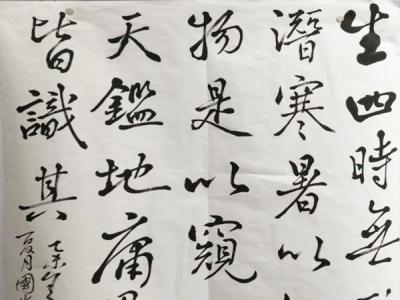 生四時無
潛寒暑以
物是以窺
天鑑地庸
皆識其
乙未
夏月國